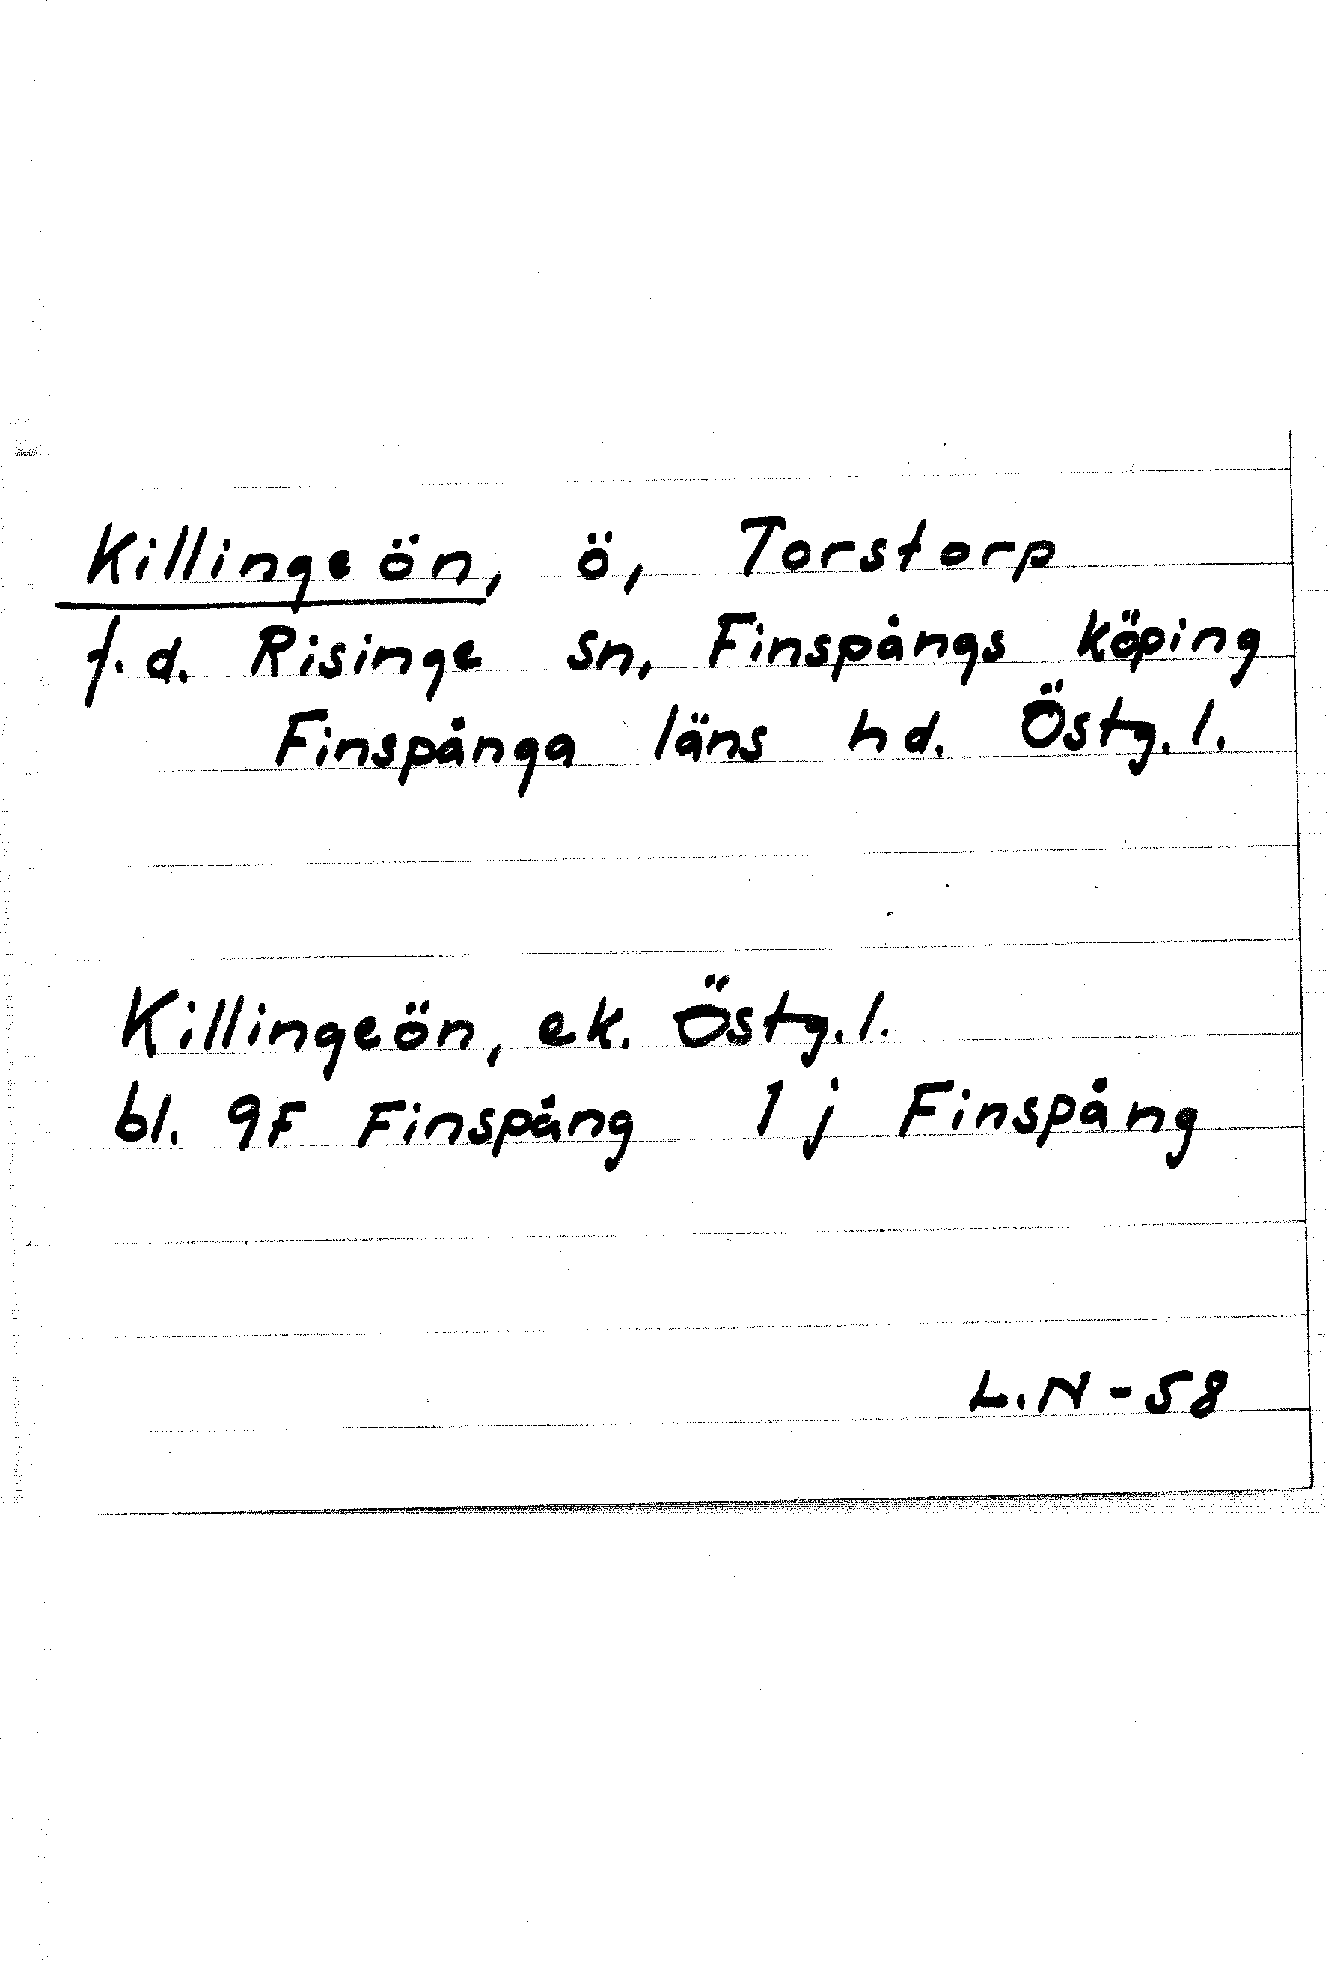 Killingeön, ö, Torstorp
f.d. Risinge sn, Finspångs köping
Finspånga läns hd. Östg.l.
Killingeön, ek. Östg.l.
bl. 9F Finspång 1 j Finspång
L.N - 58